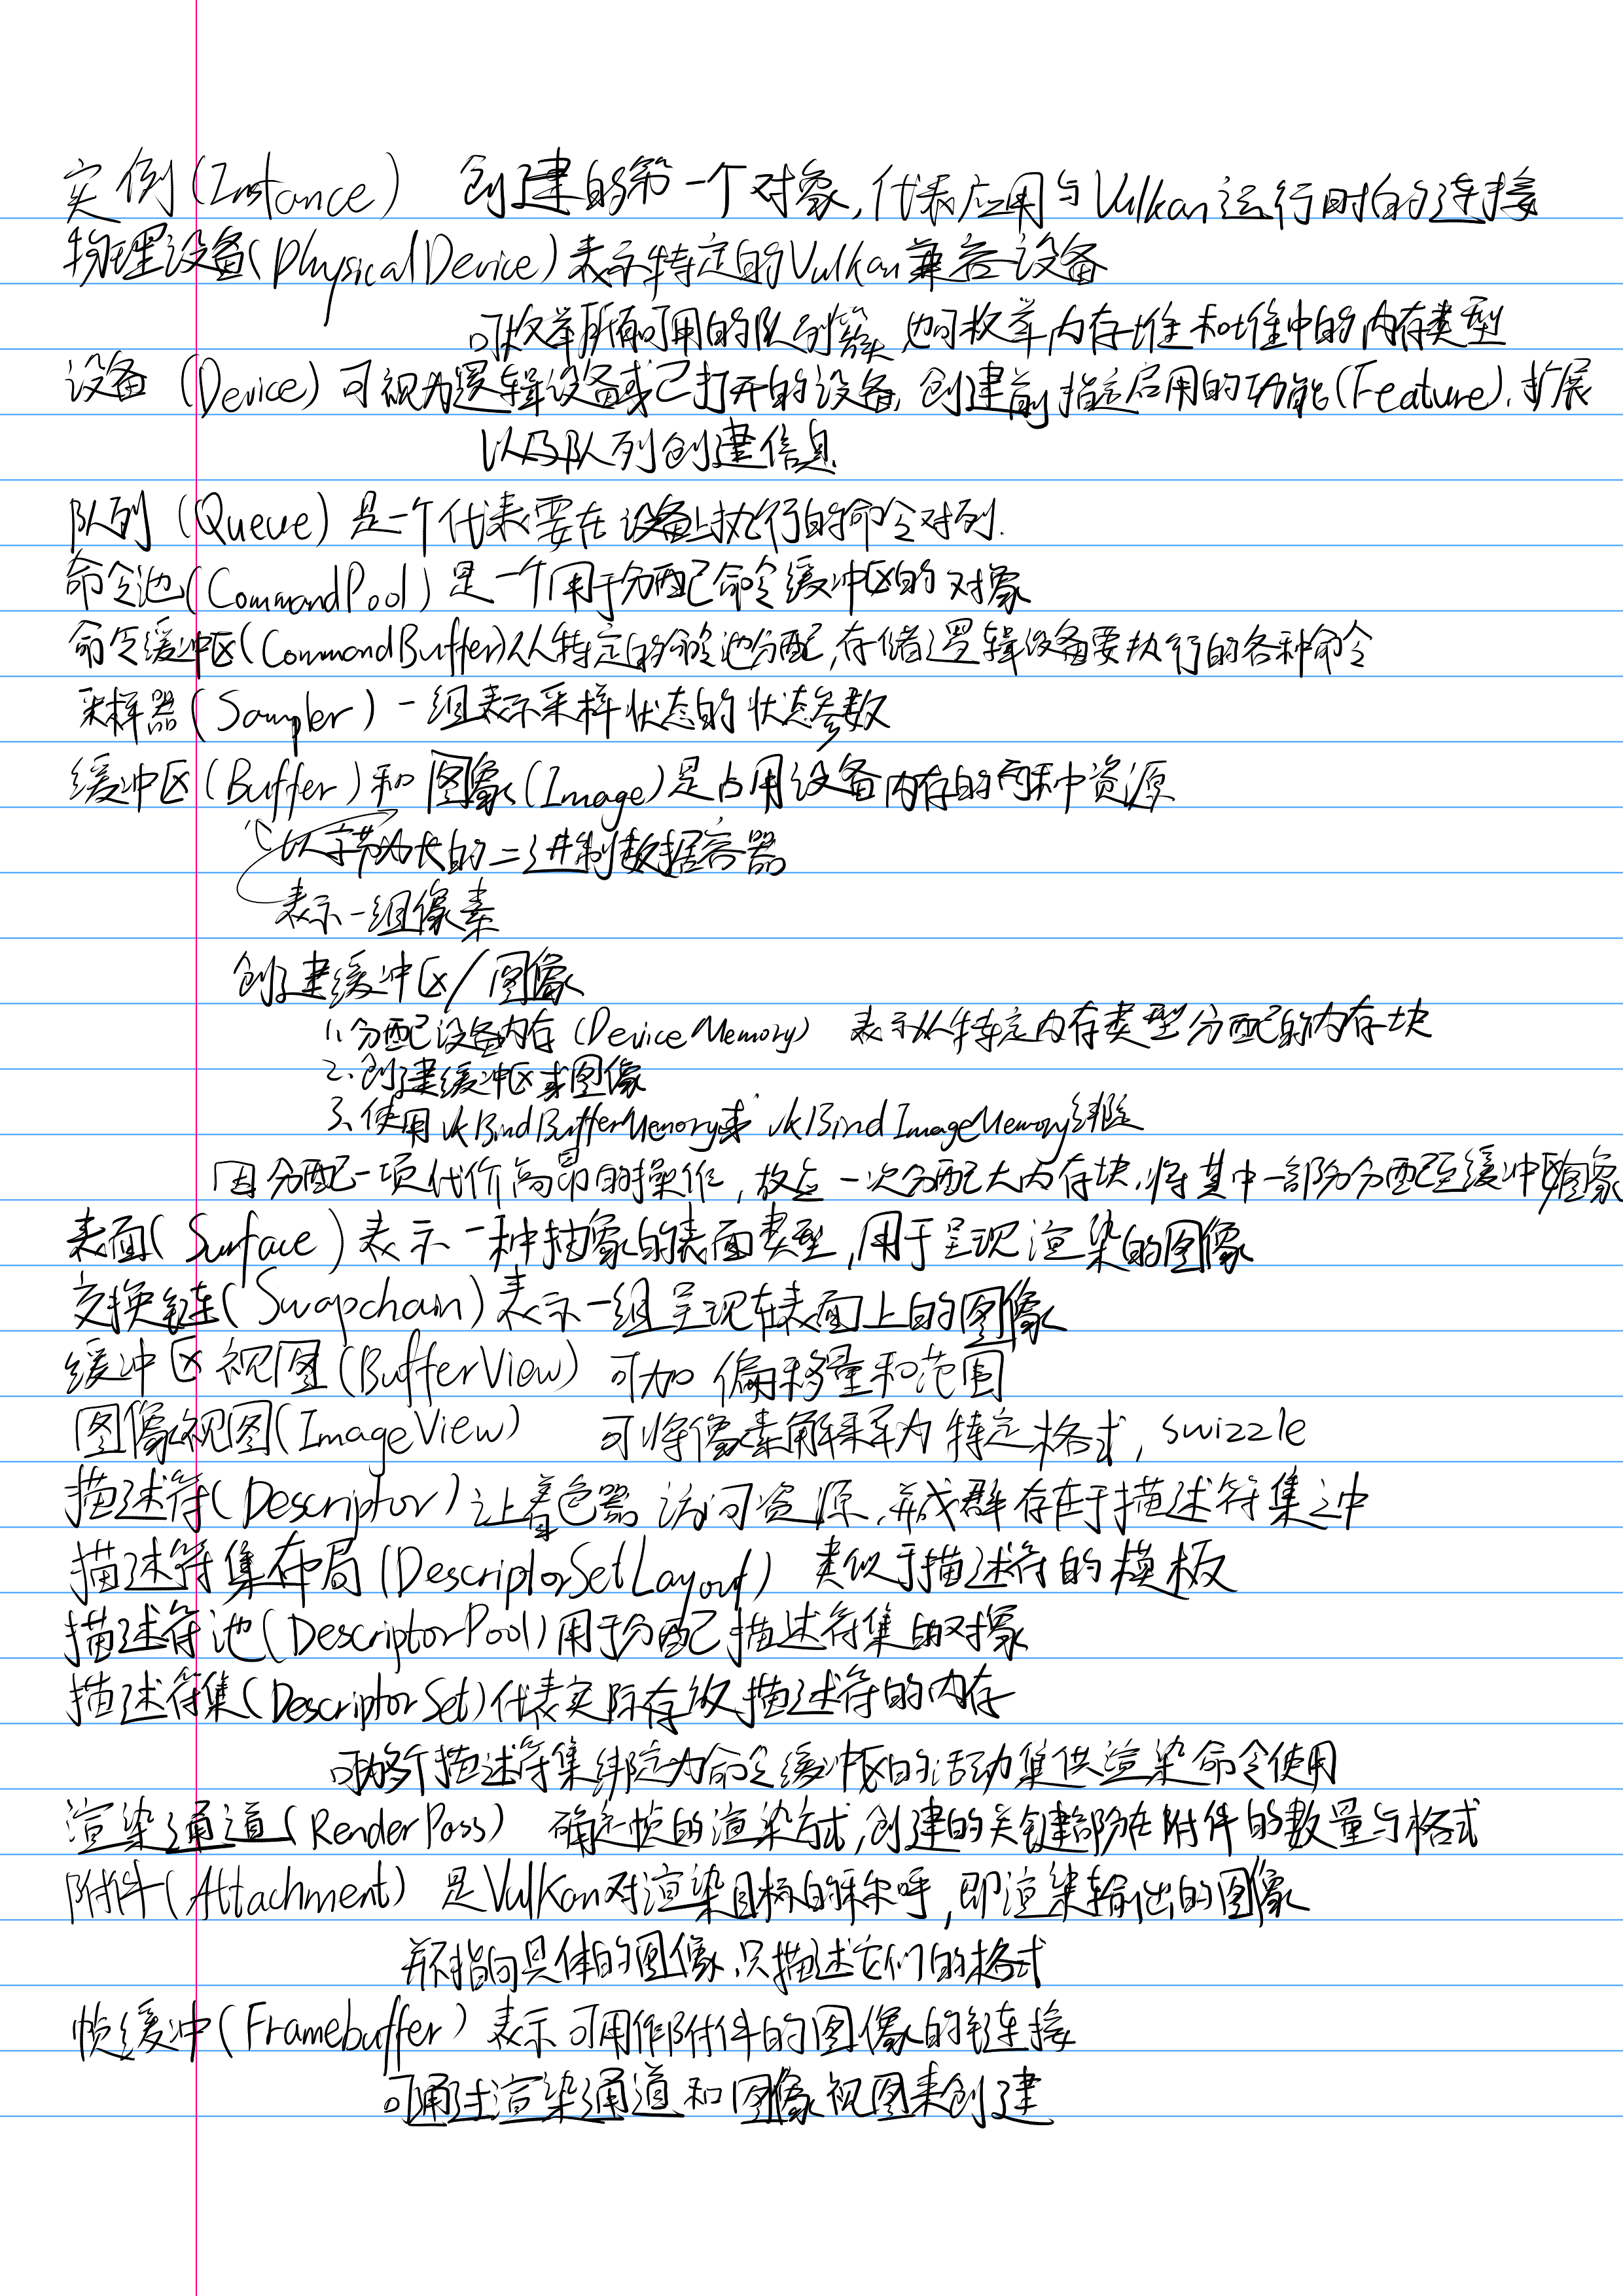 实例(Instance) 创建的第一个对象,代表应用与Vulkan运行时的连接
物理设备(PhysicalDevice)表示特定的Vulkan兼容设备
可枚举所有可用的队列簇,也可枚举内存堆和堆中的内存类型
设备 (Device) 可视为逻辑设备或已打开的设备,创建前指定启用的功能(Feature),扩展
以及队列创建信息.
队列 (Queue) 是一个代表要在设备上执行的命令对列.
命令池(CommandPool)是一个用于分配命令缓冲区的对象
命令缓冲区(CommandBuffer)从特定的命令池分配,存储逻辑设备要执行的各种命令
采样器(Sampler) 一组表示采样状态的状态参数
缓冲区(Buffer)和图像(Image)是占用设备内存的两种资源
以字节为长的二进制数据容器
表示一组像素
创建缓冲区/图像
1.分配设备内存(DeviceMemory) 表示从特定内存类型分配的内存块
2.创建缓冲区或图像
3.使用vkBindBufferMemory或vkBindImageMemory绑定
因分配一项代价高昂的操作,故应一次分配大内存块,将其中一部分分配至缓冲区/图象
表面(Surface)表示一种抽象的表面类型,用于呈现渲染的图像
交换链(Swapchain)表示一组呈现在表面上的图像
缓冲区视图(BufferView) 可加偏移量和范围
图像视图(ImageView) 可将像素解释为特定格式,swizzle
描述符(Descriptor)让着色器访问资源,并成群存在于描述符集之中
描述符集布局(DescriptorSetLayout) 类似于描述符的模板
描述符池(DescriptorPool)用于分配描述符集的对象
描述符集(DescriptorSet)代表实际存放描述符的内存
可将多个描述符集绑定为命令缓冲区的活动集供渲染命令使用
渲染通道(RenderPass) 确定帧的渲染方式,创建的关键部分在附件的数量与格式
附件(Attachment) 是Vulkan对渲染目标的称呼,即渲染输出的图像
并不指向具体的图像,只描述它们的格式
帧缓冲(Framebuffer) 表示可用作附件的图像的链接
可通过渲染通道和图像视图来创建